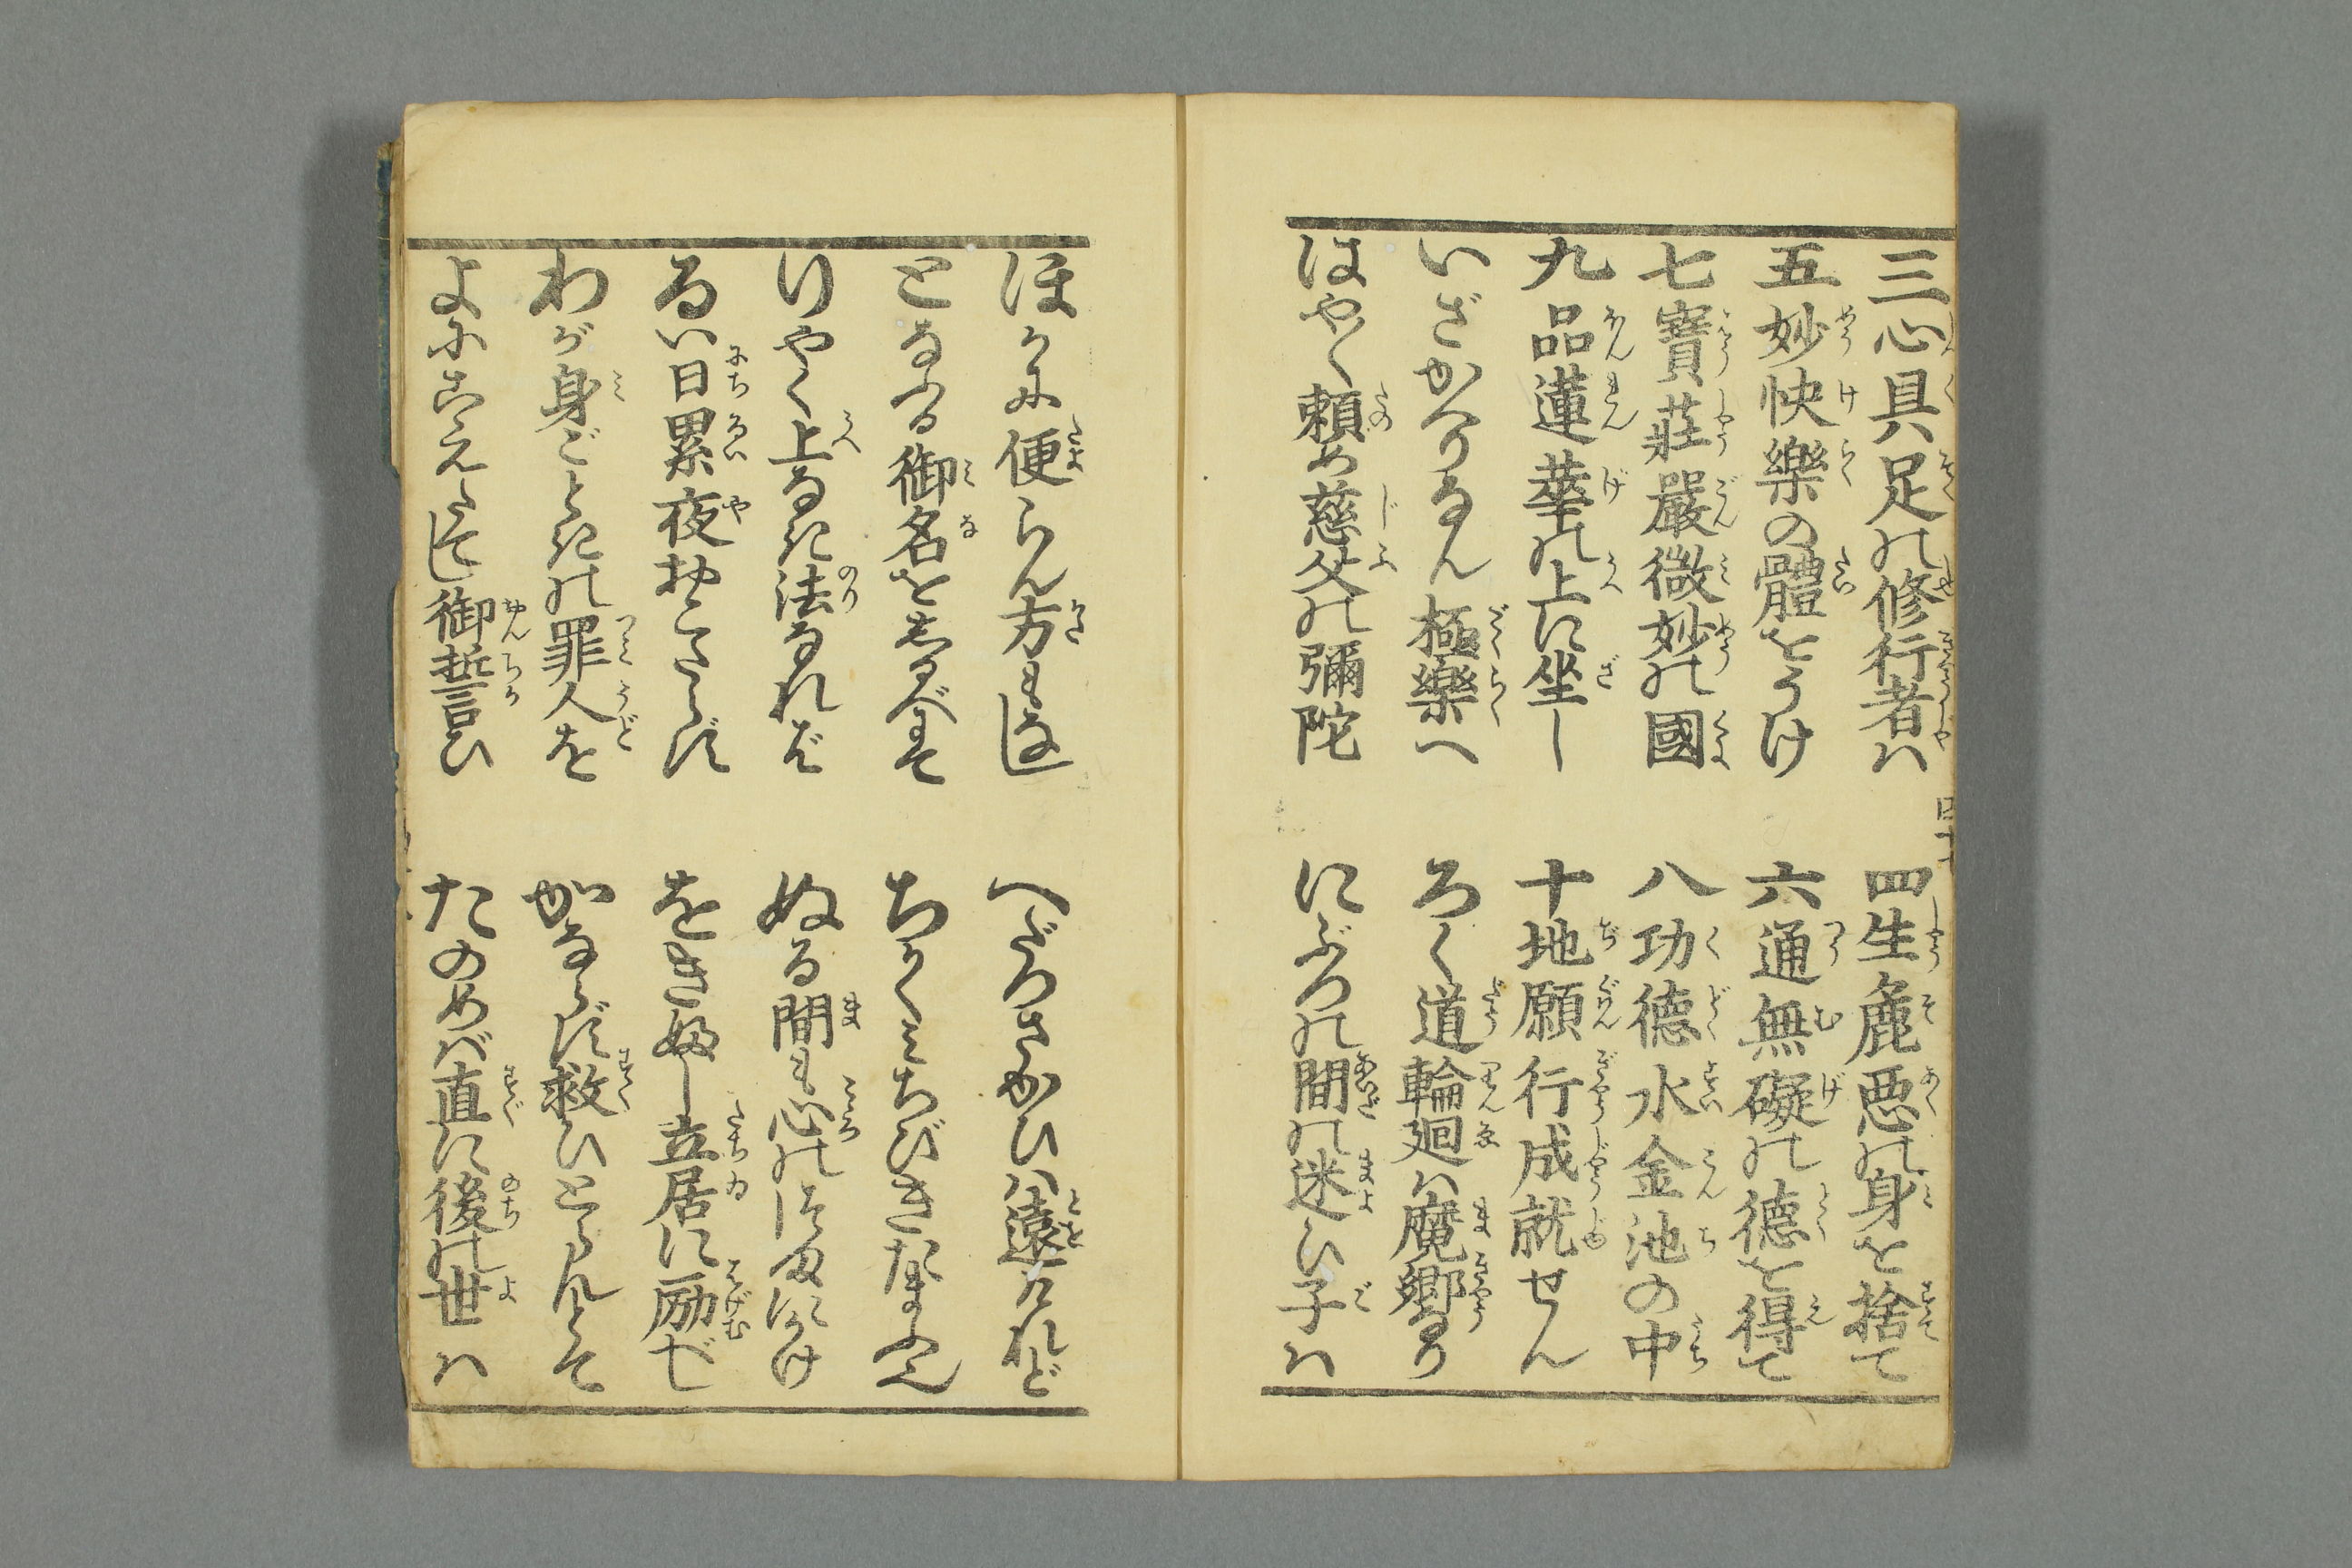 三心具足の修行者ハ
四生麁惡の身を捨て
五妙快樂の體をうけ
六通無礙の德を得て
七寳莊嚴微妙の國
八功德水金池の中
九品蓮華の上に坐し
十地願行成就せん
いざかへりなん極樂へ
ろく道輪廻ハ魔郷なり
はやく頼め慈父の彌陀
にぶつの間の迷ひ子ハ
ほかに便らん方もなし
へだつさかひハ遠けれど
となふる御名をしるべにて
ちかくみちびきたまふ
りやく上なき法なれバ
ぬる間も心のつまにかけ
るい日累夜おこたらず
をきふし立居に励べし
わが身ごときの罪人を
かならず救ひとらんとて
よにこえ 御誓ひ
たのめバ直に後の世ハ